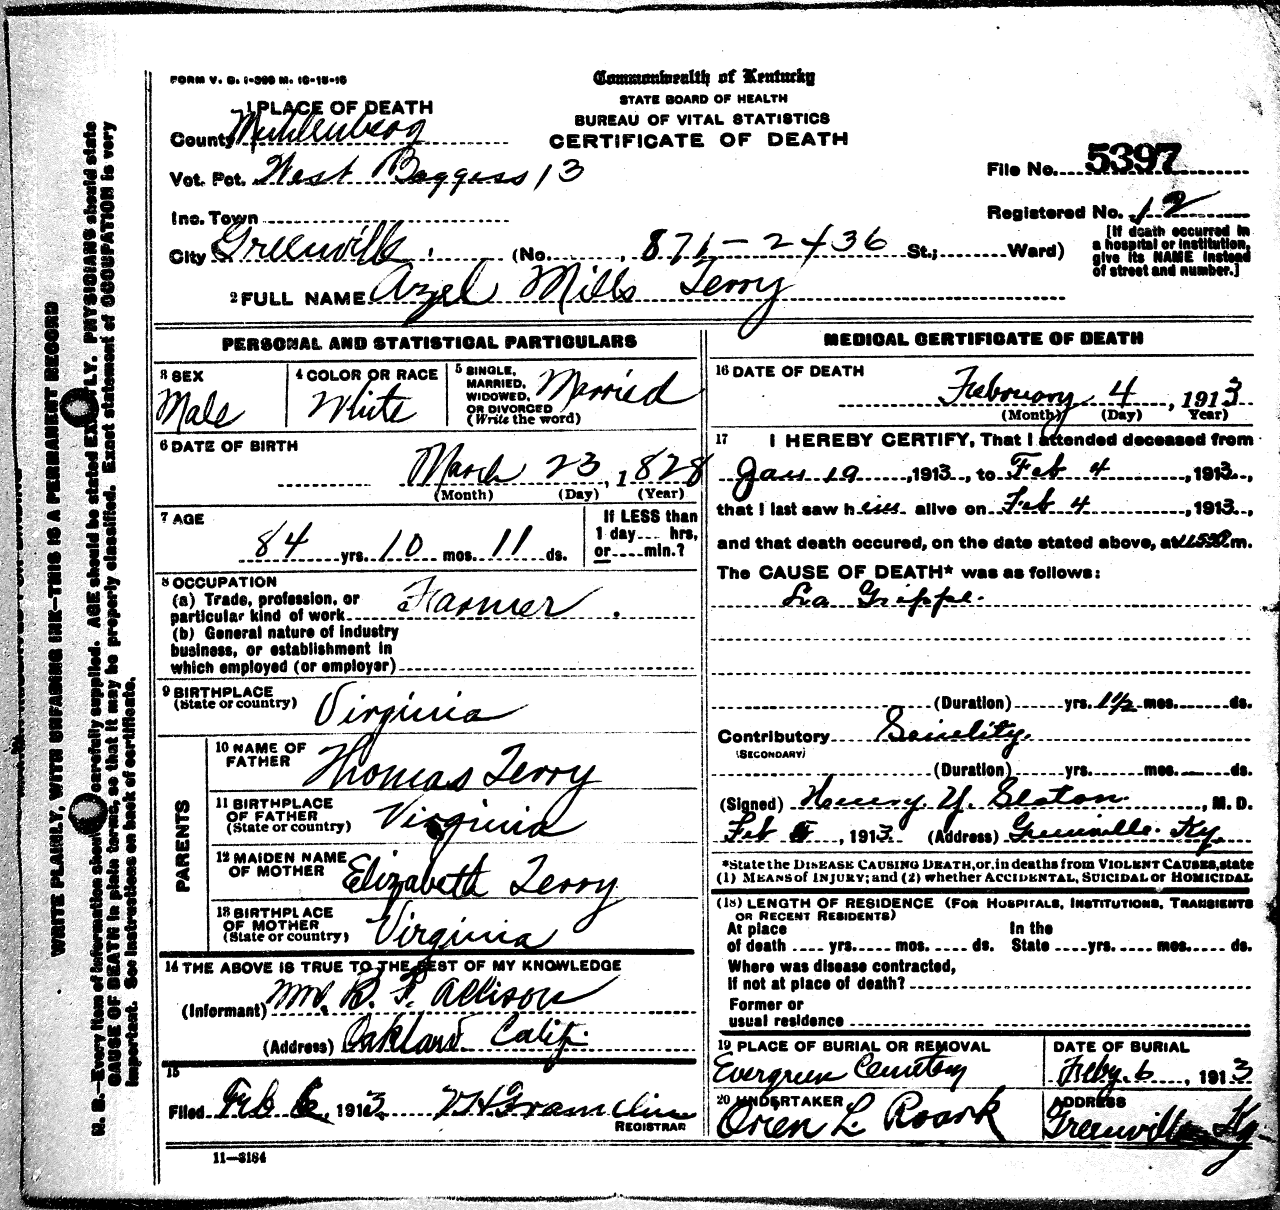 FORM V. S. 1-300 M. 10-15-10
Commonwealth of Kentucky
STATE BOARD OF HEALTH
BUREAU OF VITAL STATISTICS
CERTIFICATE OF DEATH
1 PLACE OF DEATH
County Muhlenberg
Vot. Pct. West Boggess 13
Inc. Town
City Greenville (No. 871-2436 St.; Ward)
File No. 5397
Registered No. 12
[If death occurred in
a hospital or institution,
give its NAME instead
of street and number.]
2 FULL NAME Azel Mills Terry
PERSONAL AND STATISTICAL PARTICULARS
3 SEX
Male
4 COLOR OR RACE
White
5 SINGLE,
MARRIED,
WIDOWED,
OR DIVORCED
(Write the word)
Married
6 DATE OF BIRTH
March 23, 1828
(Month) (Day) (Year)
7 AGE
84 yrs. 10 mos. 11 ds.
If LESS than
1 day.... hrs,
or....min.?
8 OCCUPATION
(a) Trade, profession, or
particular kind of work Farmer
(b) General nature of industry
business, or establishment in
which employed (or employer)
9 BIRTHPLACE
(State or country)
Virginia
PARENTS
10 NAME OF
FATHER
Thomas Terry
11 BIRTHPLACE
OF FATHER
(State or country)
Virginia
12 MAIDEN NAME
OF MOTHER
Elizabeth Terry
13 BIRTHPLACE
OF MOTHER
(State or country)
Virginia
14 THE ABOVE IS TRUE TO THE BEST OF MY KNOWLEDGE
(Informant) B. F. Allison
(Address) Oakland Calif
15
Filed Feb 6, 1913
REGISTRAR
11-3184
MEDICAL CERTIFICATE OF DEATH
16 DATE OF DEATH
February 4, 1913
(Month) (Day) Year)
17 I HEREBY CERTIFY, That I attended deceased from
Jan 19, 1913, to Feb 4, 1913,
that I last saw him alive on Feb 4, 1913,
and that death occured, on the date stated above, at m.
The CAUSE OF DEATH* was as follows:
La Grippe.
(Duration) yrs. 1 1/2 mos. ds.
Contributory Senility.
(SECONDARY)
(Duration) yrs. mos. ds.
(Signed) Henry Y. Slaton, M. D.
Feb 5, 1913. (Address) Greenville Ky.
*State the DISEASE CAUSING DEATH, or, in deaths from VIOLENT CAUSES, state
(1) MEANS of INJURY; and (2) whether ACCIDENTAL, SUICIDAL or HOMICIDAL
(18) LENGTH OF RESIDENCE (FOR HOSPITALS, INSTITUTIONS, TRANSIENTS
OR RECENT RESIDENTS)
At place
of death .... yrs. mos. ds.
In the
State yrs. mos. ds.
Where was disease contracted,
If not at place of death?
Former or
usual residence
19 PLACE OF BURIAL OR REMOVAL
Evergreen Cemetery
DATE OF BURIAL
Feby. 6, 1913
20 UNDERTAKER
Orien L. Roark
ADDRESS
Greenville Ky
WRITE PLAINLY, WITH UNFADING INK—THIS IS A PERMANENT RECORD
N. B.—Every item of information should be carefully supplied. AGE should be stated EXACTLY. PHYSICIANS should state
CAUSE OF DEATH in plain terms, so that it may be properly classified. Exact statement of OCCUPATION is very
important. See instructions on back of certificate.